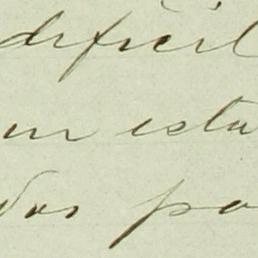 dificil
en esta
dos pa